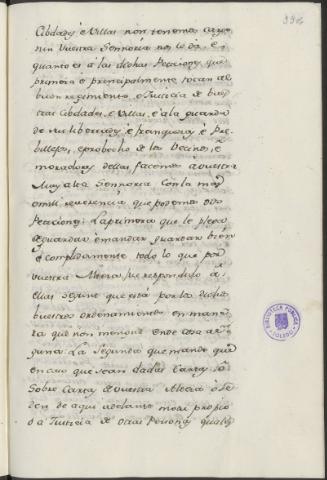 394
Cibdades é Villas non tenemos cargo
nin vuestra Sennoria nos lo dá, é
quanto es á las dichas Peticiones que
primera é principalmente tocan al
buen regimiento, é Justicia de bues
tras Cibdades, é Villas, é á la guarda
de sus libertades é franquezas é Pre
billejos, é probecho de los Vecinos, é
moradores dellas facemos á vuestra
Muy alta Sennoria con la mayor
omill reverencia que podemos dos
Peticiones: La primera que le plega
guardar é mandar guardar bien
é complidamente todo lo que por
vuestra Merced fue respondido á
ellas segunt que está por los dichos
buestros ordenamientos en mane
ra que non mengue ende cosa al
guna: La segunda que mande que
en caso que sean dadas Cartas, ó
sobre Cartas de vuestra Merced ó se
den de aqui adelante motu propio
ó á Justicia de otras Personas quales
BIBLIOTECA PUBLICA
TOLEDO